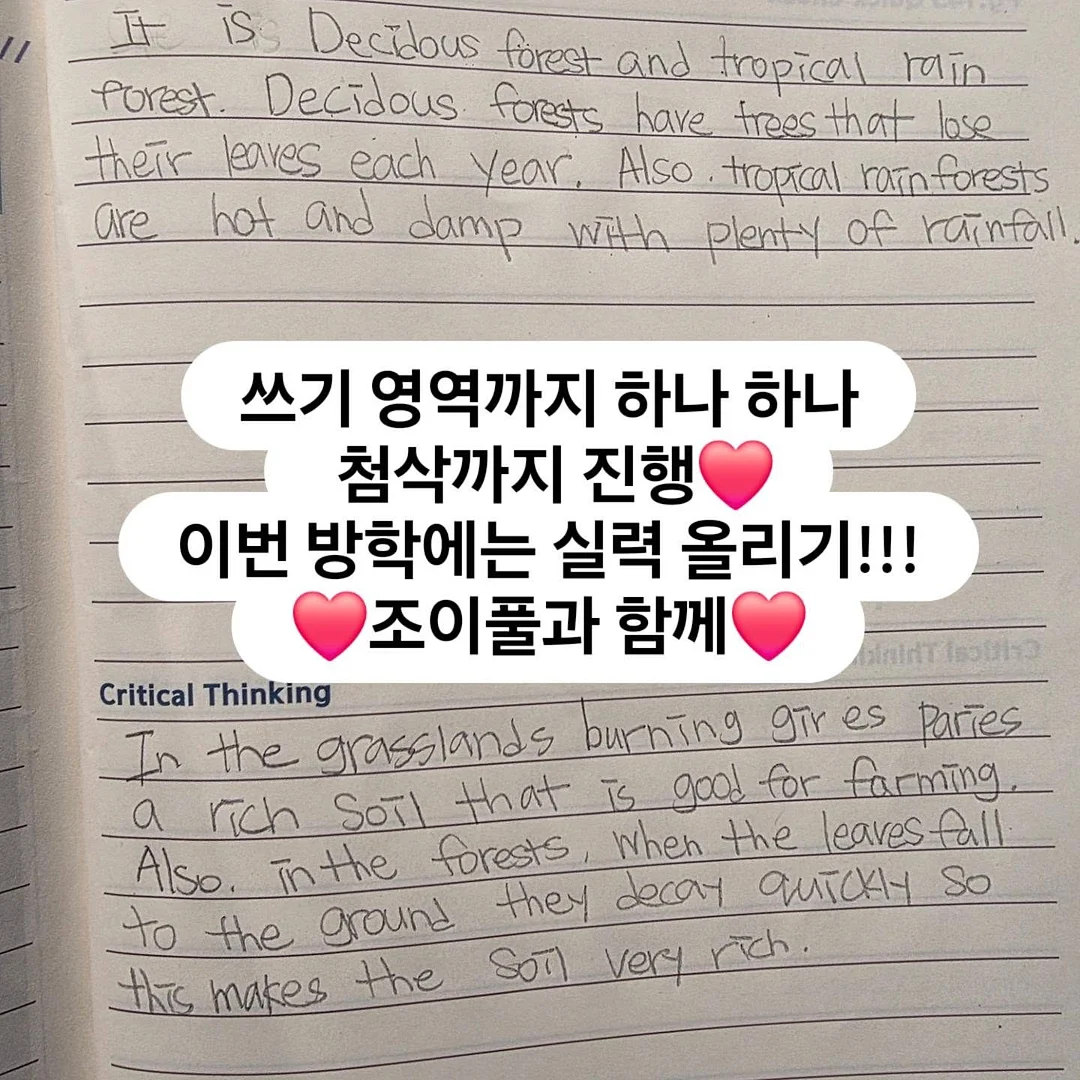 It is Decidous forest and tropical rain
forest. Decidous forests have trees that lose
their leaves each year. Also. tropical rainforests
are hot and damp with plenty of rainfall.
쓰기 영역까지 하나 하나
첨삭까지 진행❤️
이번 방학에는 실력 올리기!!!
❤️조이풀과 함께❤️
Critical Thinking
In the grasslands burning gives paries
a rich soil that is good for farming.
Also. in the forests, when the leaves fall
to the ground they decay quickly so
this makes the soil very rich.